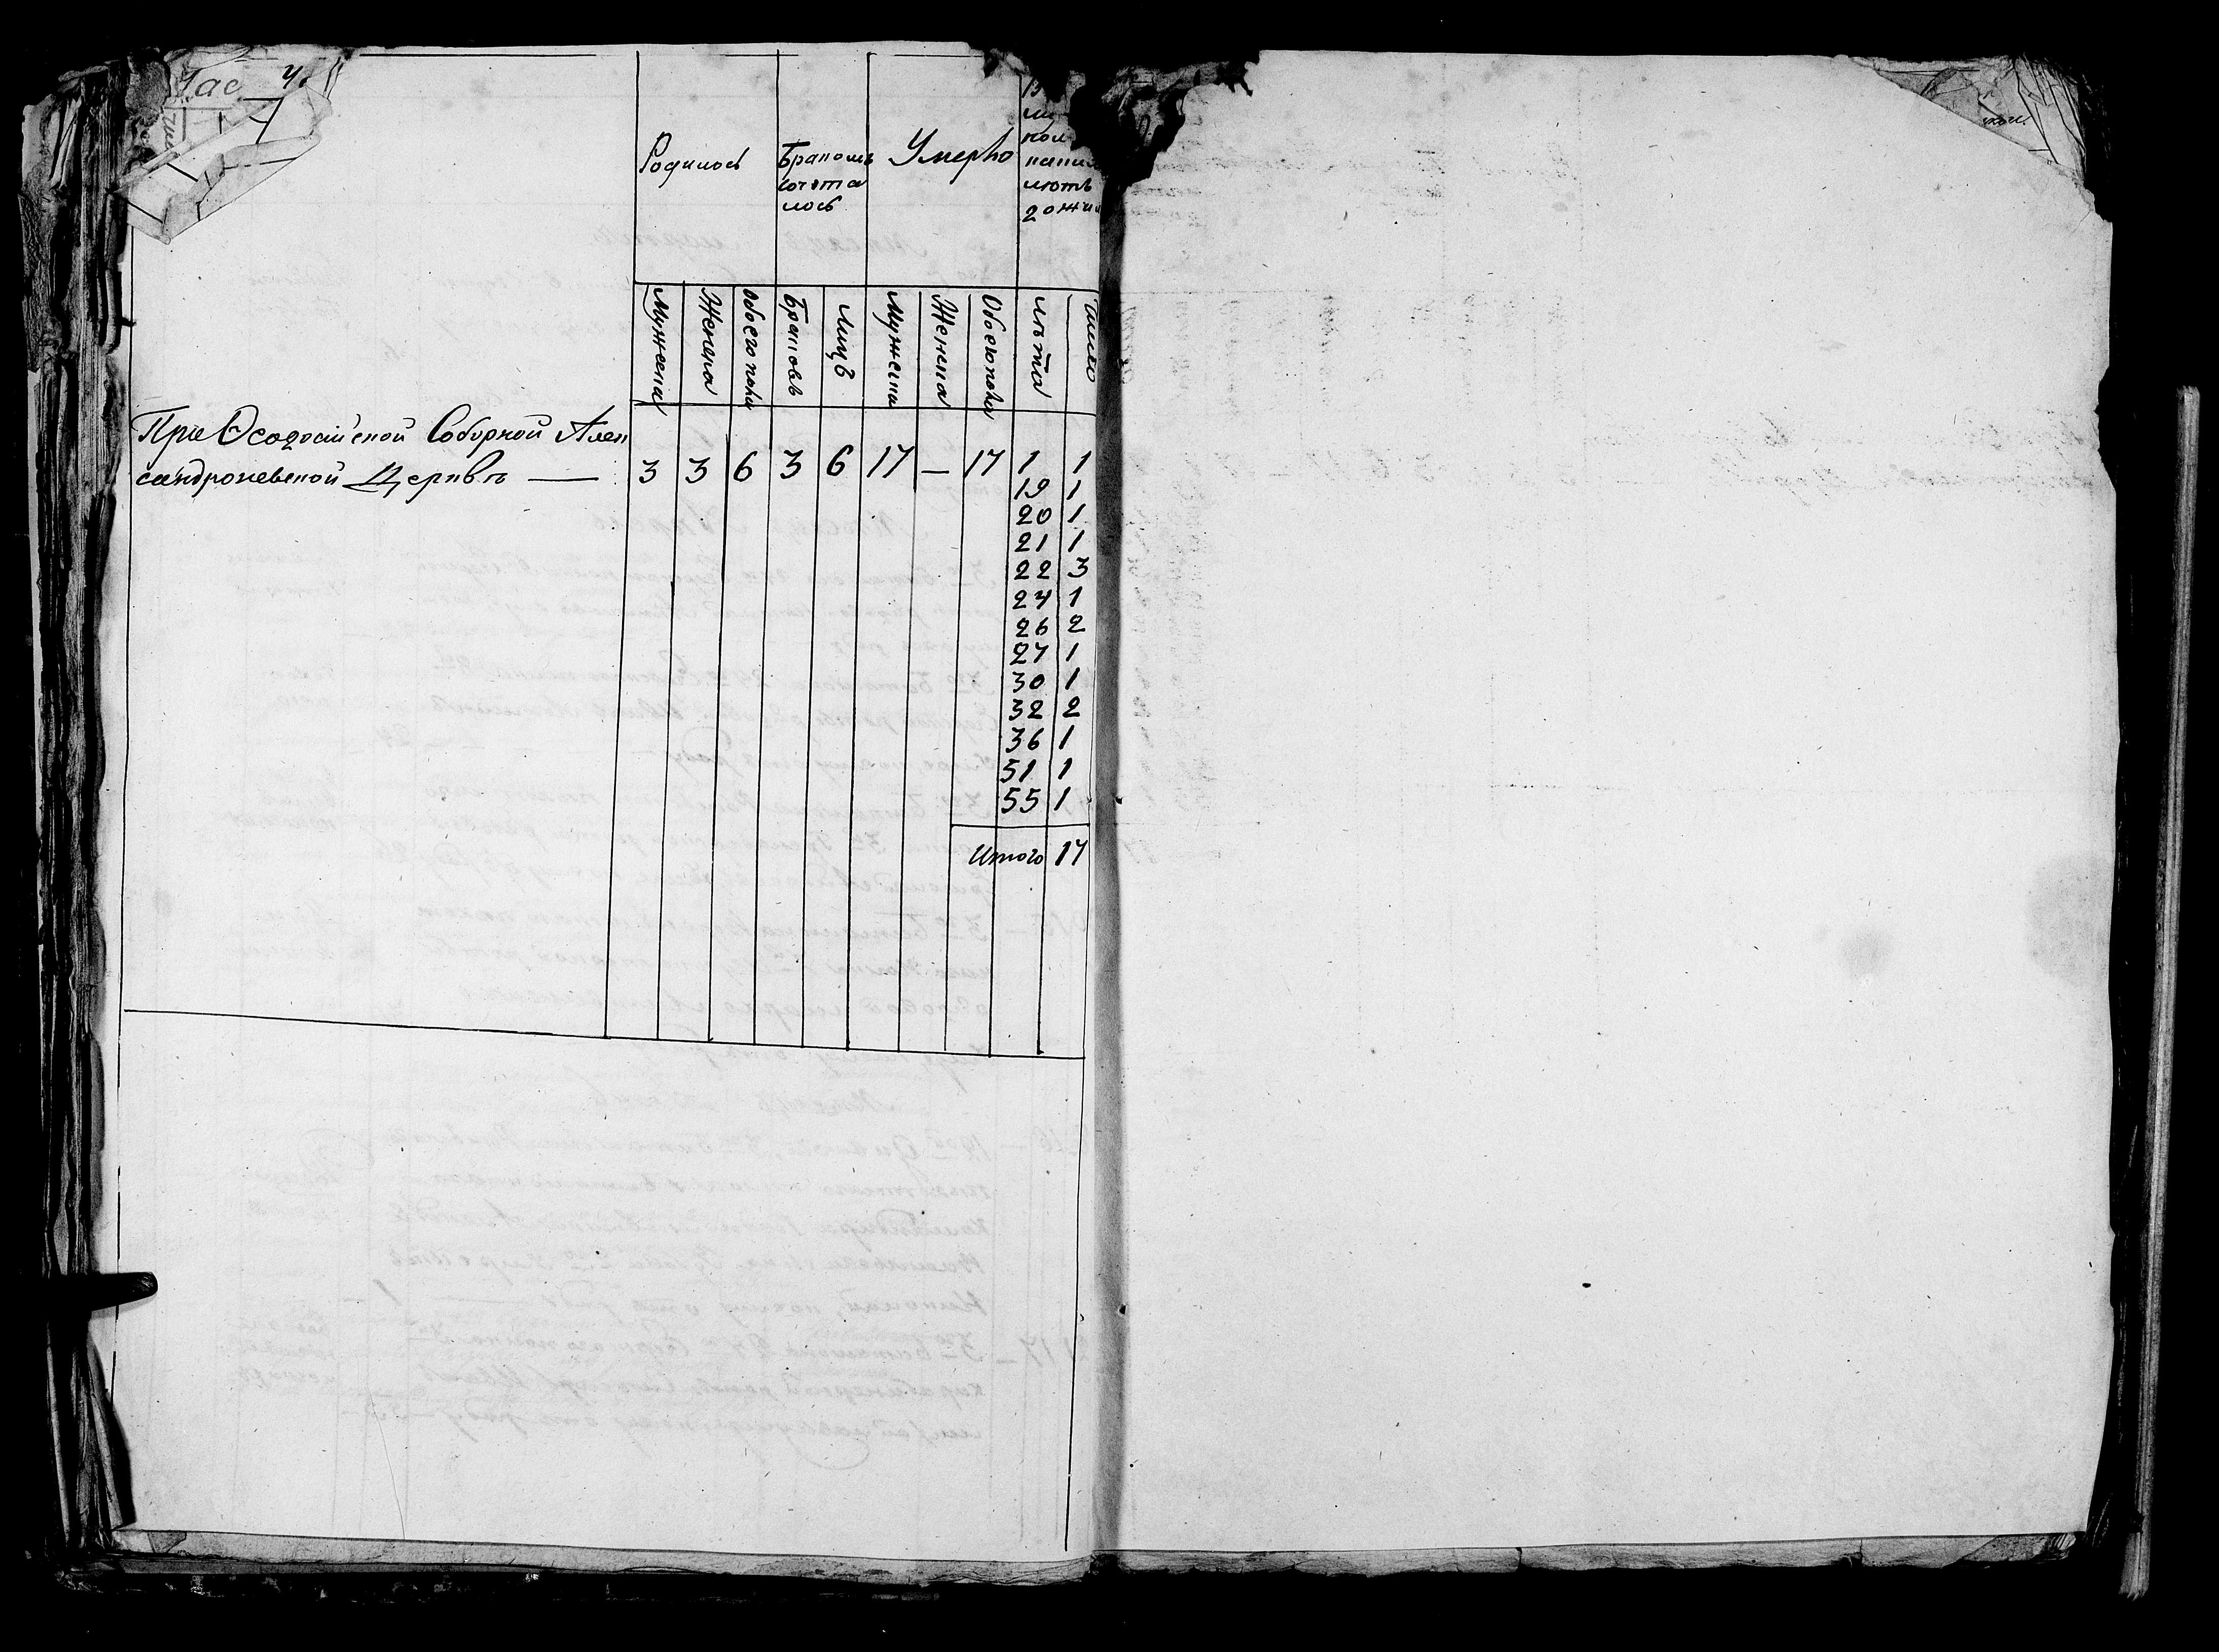 Родилось
Бракомъ
сочета
лось
Умерло
кол
лѣтъ
Мужеска
Женска
Обоего пола
Браковъ
Лицъ
Мужеска
Женска
Обоего пола
лѣта
число
При Ѳеодосійской Соборной Алек
сандроневской Церквѣ — 3 3 6 3 6 17 — 17 1 1
19 1
20 1
21 1
22 3
24 1
26 2
27 1
30 1
32 2
36 1
51 1
55 1
Итого 17